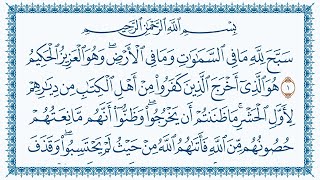 بِسْمِ اللَّهِ الرَّحْمَٰنِ الرَّحِيمِ
سَبَّحَ لِلَّهِ مَا فِي السَّمَاوَاتِ وَمَا فِي الْأَرْضِ ۖ وَهُوَ الْعَزِيزُ الْحَكِيمُ
١ هُوَ الَّذِي أَخْرَجَ الَّذِينَ كَفَرُوا مِنْ أَهْلِ الْكِتَابِ مِن دِيَارِهِمْ
لِأَوَّلِ الْحَشْرِ ۚ مَا ظَنَنتُمْ أَن يَخْرُجُوا ۖ وَظَنُّوا أَنَّهُم مَّانِعَتُهُمْ
حُصُونُهُم مِّنَ اللَّهِ فَأَتَاهُمُ اللَّهُ مِنْ حَيْثُ لَمْ يَحْتَسِبُوا ۖ وَقَذَفَ